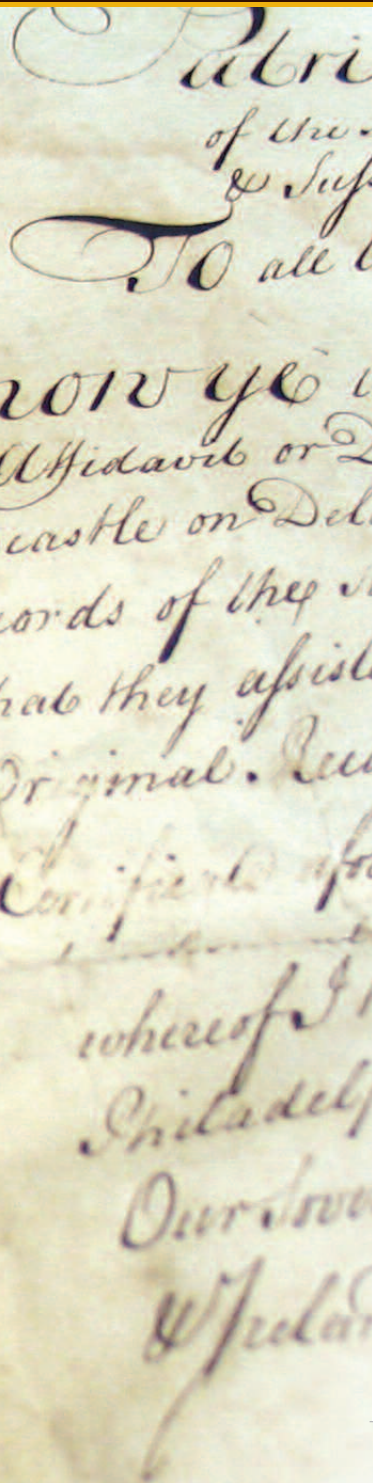 Patri
of the
& Suſs
To all
now ye
Affidavit or D
castle on Dela
cords of the
hat they aſsist
Original. Rec
Certificate afo
whereof I h
Philadelp
Our Sove
& Irelan